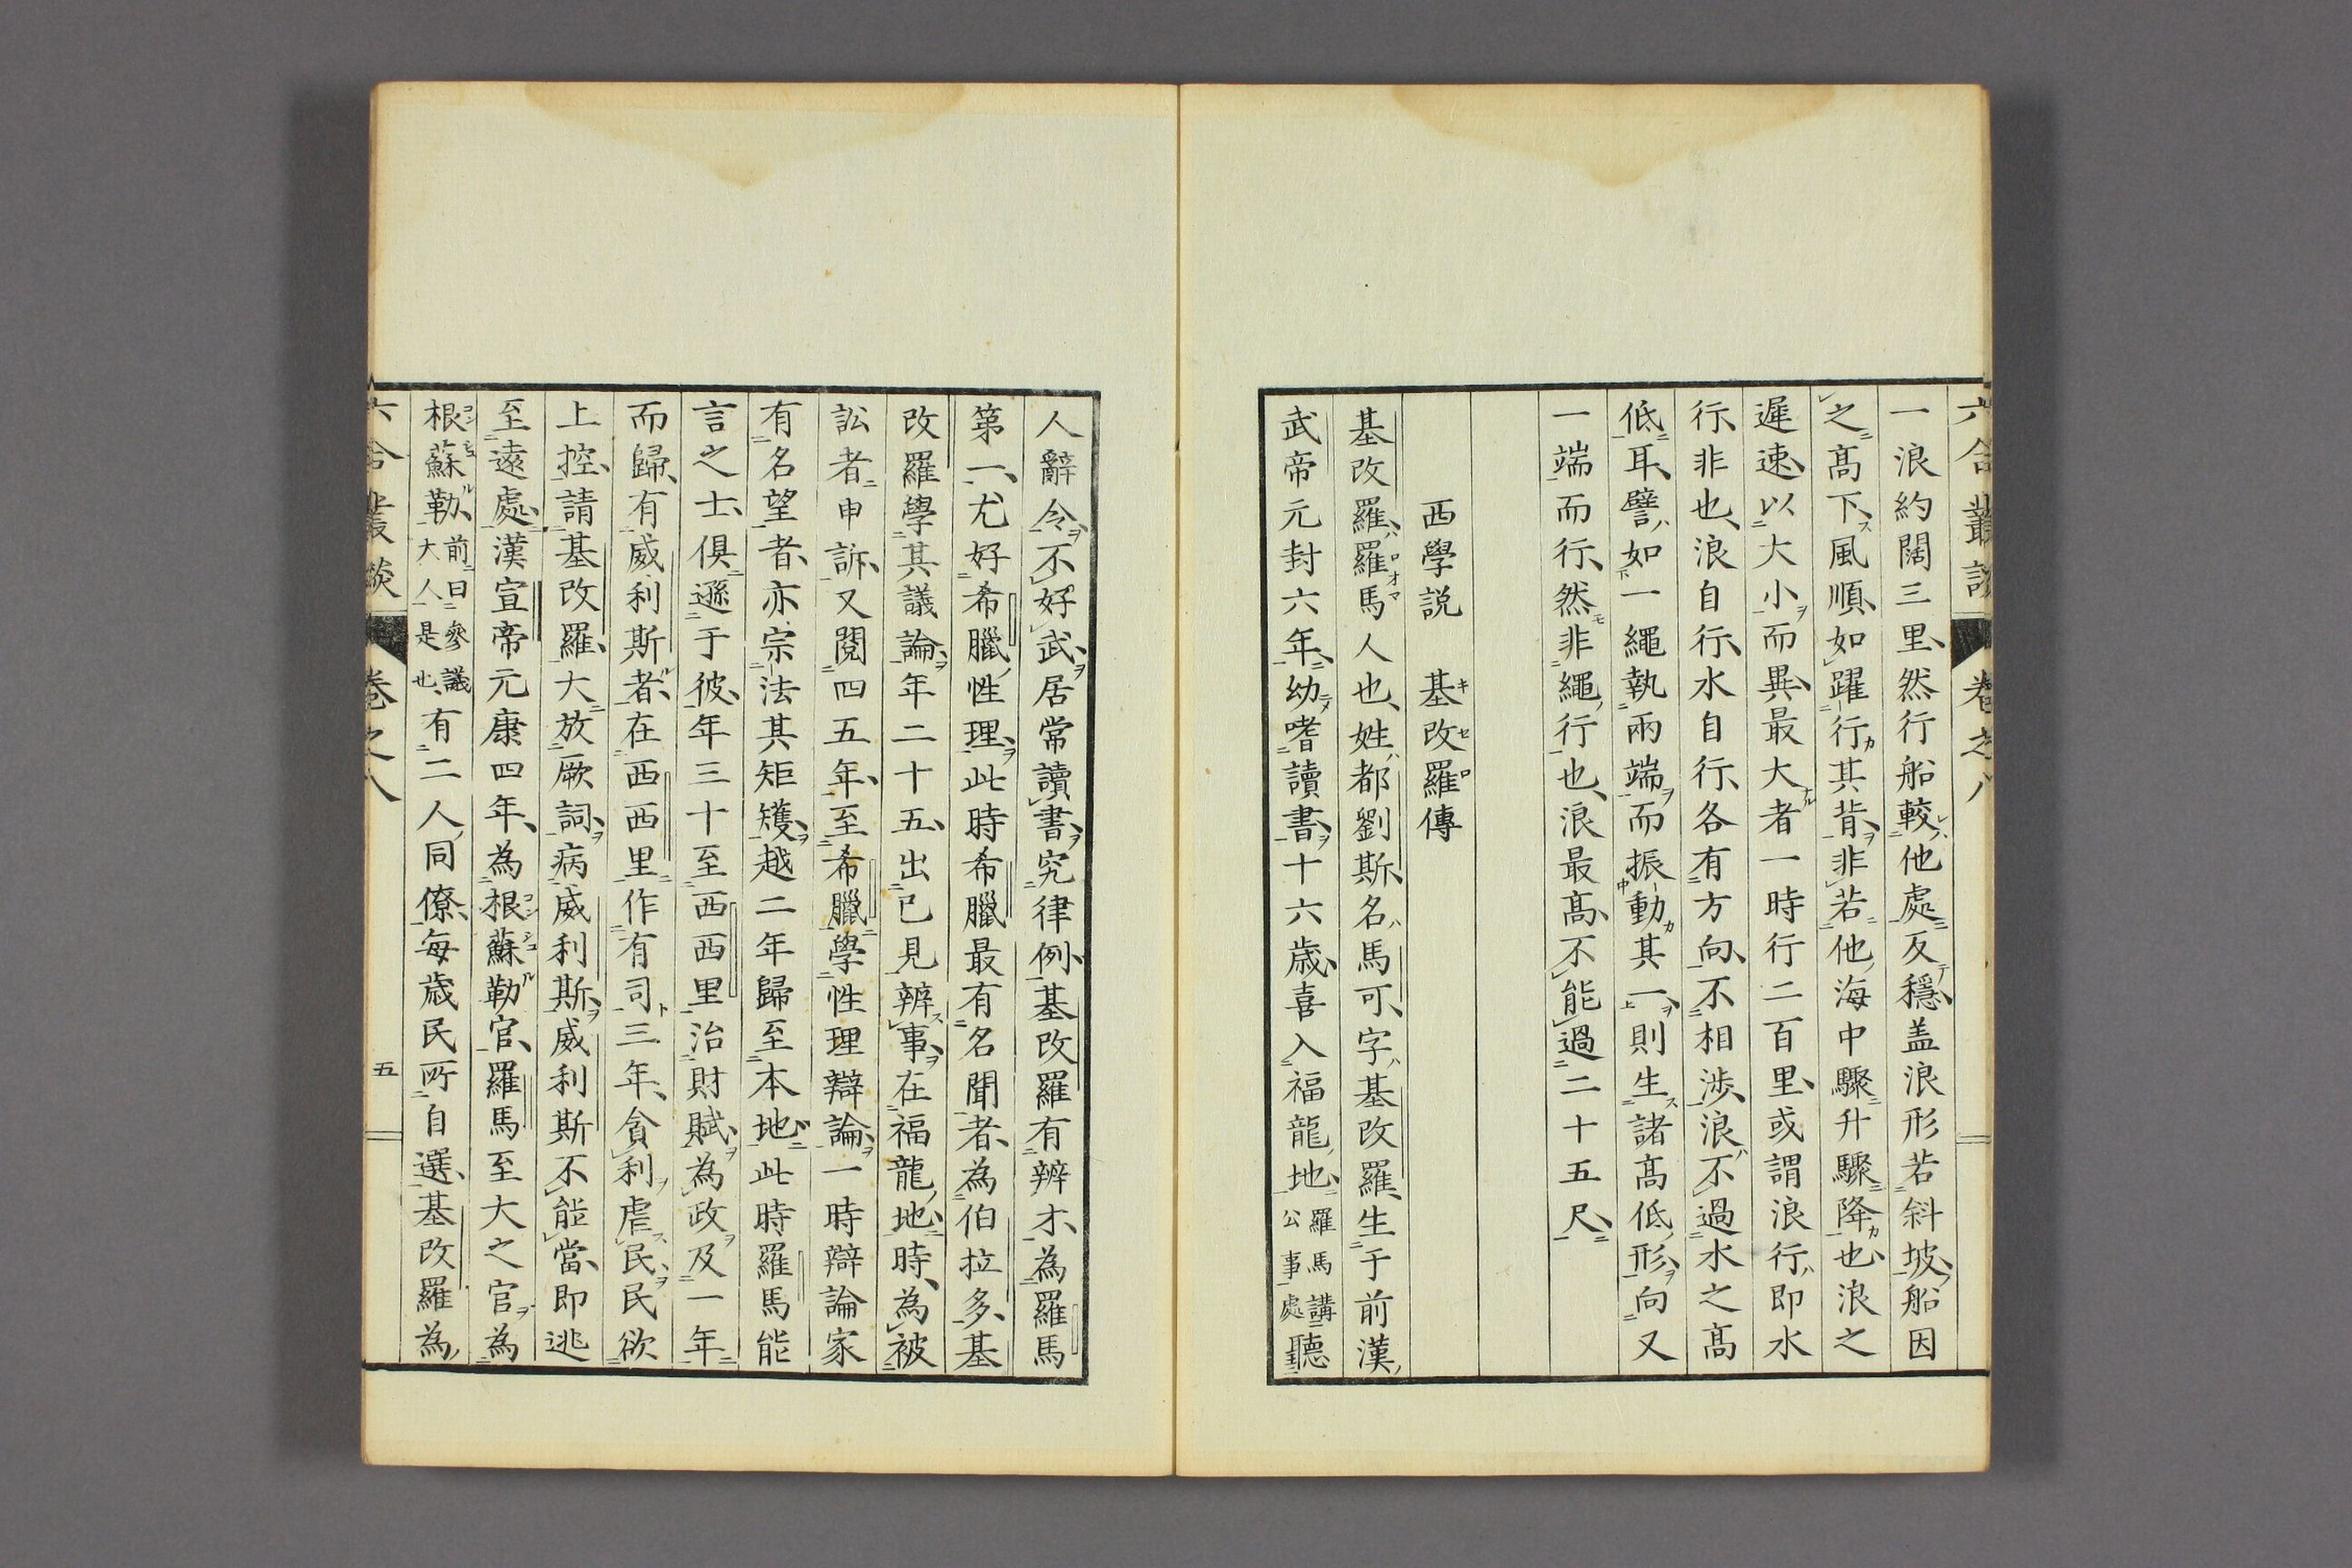 六合叢談 卷之八
一浪約闊三里然行船較他處反穩盖浪形若斜坡船因
之高下風順如躍行其背非若他海中驟升驟降也浪之
遲速以大小而異最大者一時行二百里或謂浪行即水
行非也浪自行水自行各有方向不相涉浪不過水之高
低耳譬如一繩執兩端而振動其一則生諸高低形向又
一端而行然非繩行也浪最高不能過二十五尺
西學説 基改羅傳
基改羅羅馬人也姓都劉斯名馬可字基改羅生于前漢
武帝元封六年幼嗜讀書十六歲喜入福龍地羅馬講公事處聽
人辭令不好武居常讀書究律例基改羅有辨才為羅馬
第一尤好希臘性理此時希臘最有名聞者為伯拉多基
改羅學其議論年二十五出已見辨事在福龍地時為被
訟者申訴又閱四五年至希臘學性理辯論一時辯論家
有名望者亦宗法其矩矱越二年歸至本地此時羅馬能
言之士俱遜于彼年三十至西西里治財賦為政及一年
而歸有威利斯者在西西里作有司三年貪利虐民民欲
上控請基改羅大放厥詞病威利斯威利斯不能當即逃
至遠處漢宣帝元康四年為根蘇勒官羅馬至大之官為
根蘇勒前曰參議大人是也有二人同僚每歲民所自選基改羅為
六合叢談 卷之八 五